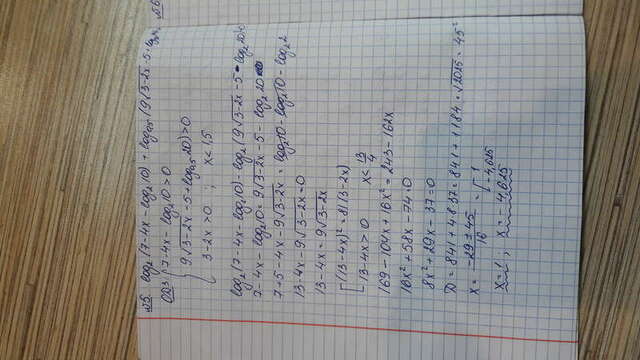 №5. log₂(7-4x-log₂10) + log₀,₅(9√3-2x-5+log₀,₅
№6
ОДЗ: 7-4x-log₂10>0
9√3-2x-5+log₀,₅20)>0
3-2x>0 ; x<1,5
log₂(7-4x-log₂10)-log₂(9√3-2x-5-log₂20)=0
7-4x-log₂10=9√3-2x-5-log₂20
7+5-4x-9√3-2x=log₂10-log₂10-log₂2
13-4x-9√3-2x=0
13-4x=9√3-2x
(13-4x)²=81(3-2x)
13-4x>0 x<13/4
169-104x+16x²=243-162x
16x²+58x-74=0
8x²+29x-37=0
D=841+4·8·37=841+1184=√2025=45²
x=(-29±45)/16=[1 -4,625
x=1 ; x=-4,625